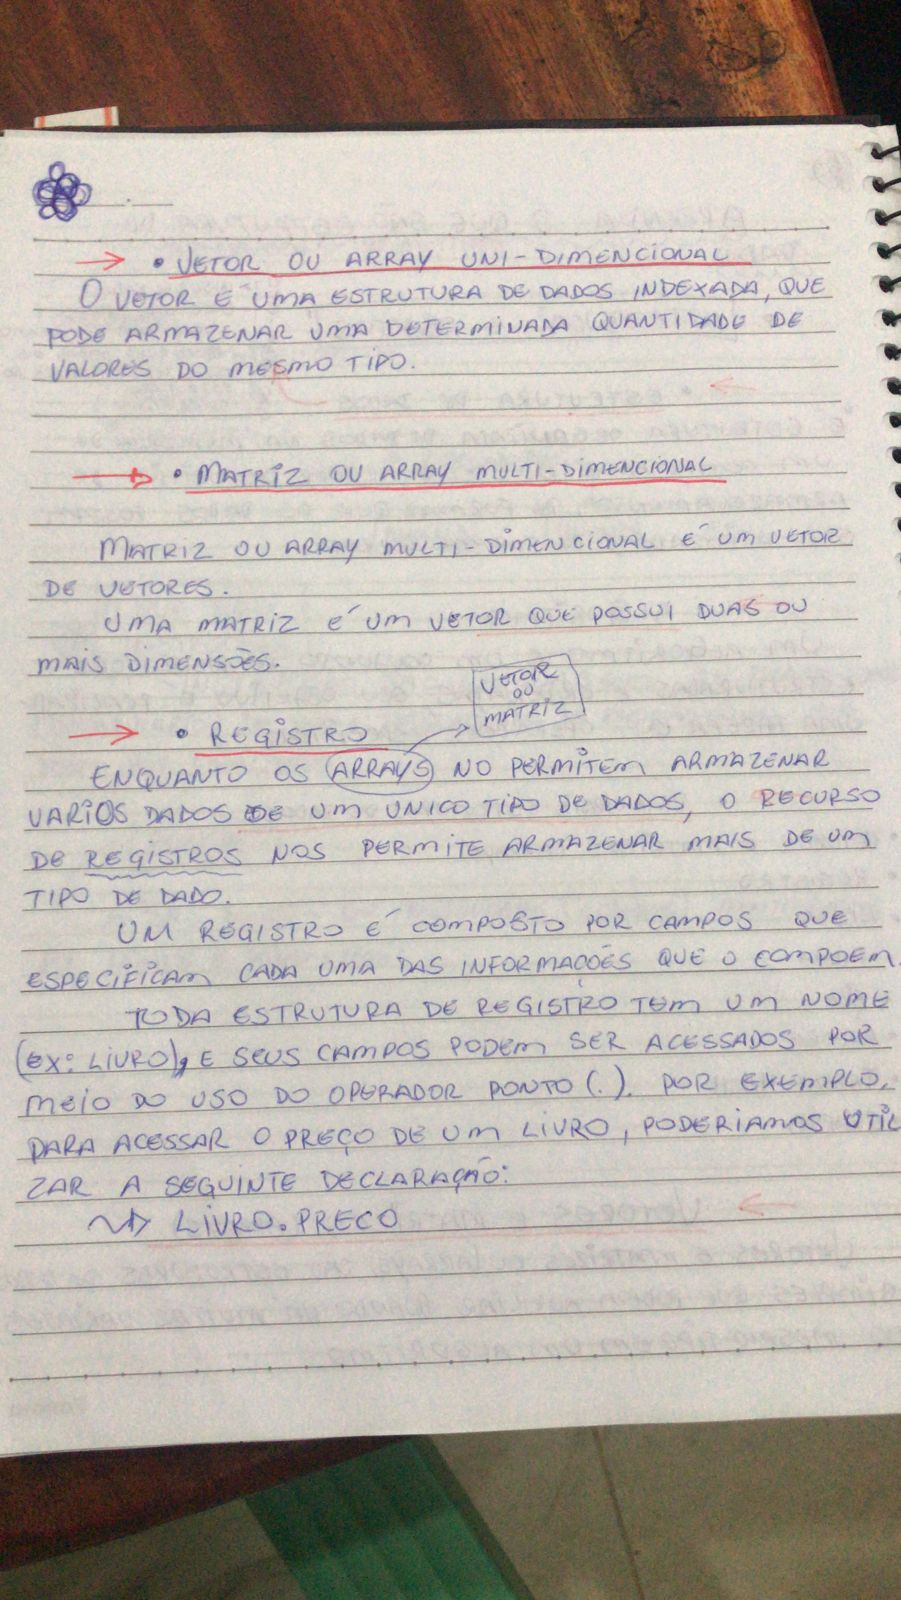 • VETOR OU ARRAY UNI-DIMENCIONAL
O VETOR E UMA ESTRUTURA DE DADOS INDEXADA, QUE
PODE ARMAZENAR UMA DETERMINADA QUANTIDADE DE
VALORES DO MESMO TIPO.
• MATRIZ OU ARRAY MULTI-DIMENCIONAL
MATRIZ OU ARRAY MULTI-DIMENCIONAL É UM VETOR
DE VETORES.
UMA MATRIZ É UM VETOR QUE POSSUI DUAS OU
MAIS DIMENSÕES.
VETOR
OU
MATRIZ
• REGISTRO
ENQUANTO OS ARRAYS NO PERMITEM ARMAZENAR
VARIOS DADOS DE UM UNICO TIPO DE DADOS, O RECURSO
DE REGISTROS NOS PERMITE ARMAZENAR MAIS DE UM
TIPO DE DADO.
UM REGISTRO É COMPOSTO POR CAMPOS QUE
ESPECIFICAM CADA UMA DAS INFORMAÇÕES QUE O COMPOEM.
TODA ESTRUTURA DE REGISTRO TEM UM NOME
(EX: LIVRO), E SEUS CAMPOS PODEM SER ACESSADOS POR
MEIO DO USO DO OPERADOR PONTO (.). POR EXEMPLO,
PARA ACESSAR O PREÇO DE UM LIVRO, PODERIAMOS UTILI
ZAR A SEGUINTE DECLARAÇÃO:
LIVRO.PRECO